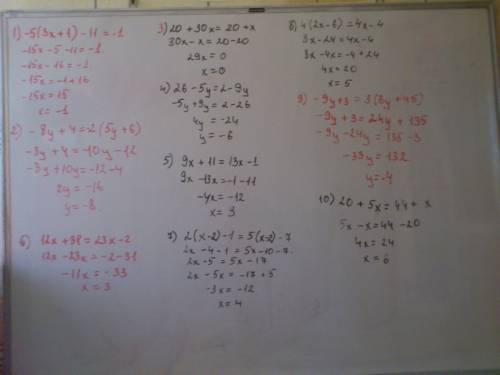 1) -5(3x+1)-11=-1
-15x-5-11=-1
-15x-16=-1
-15x=-1+16
-15x=15
x=-1
2) -8y+4=-2(5y+6)
-8y+4=-10y-12
-8y+10y=-12-4
2y=-16
y=-8
6) 12x+31=23x-2
12x-23x=-2-31
-11x=-33
x=3
3) 20+30x=20+x
30x-x=20-20
29x=0
x=0
4) 26-5y=2-9y
-5y+9y=2-26
4y=-24
y=-6
5) 9x+11=13x-1
9x-13x=-1-11
-4x=-12
x=3
7) 2(x-2)-1=5(x-2)-7
2x-4-1=5x-10-7
2x-5=5x-17
2x-5x=-17+5
-3x=-12
x=4
8) 4(2x-6)=4x-4
8x-24=4x-4
8x-4x=-4+24
4x=20
x=5
9) -9y+3=3(8y+45)
-9y+3=24y+135
-9y-24y=135-3
-33y=132
y=-4
10) 20+5x=44+x
5x-x=44-20
4x=24
x=6